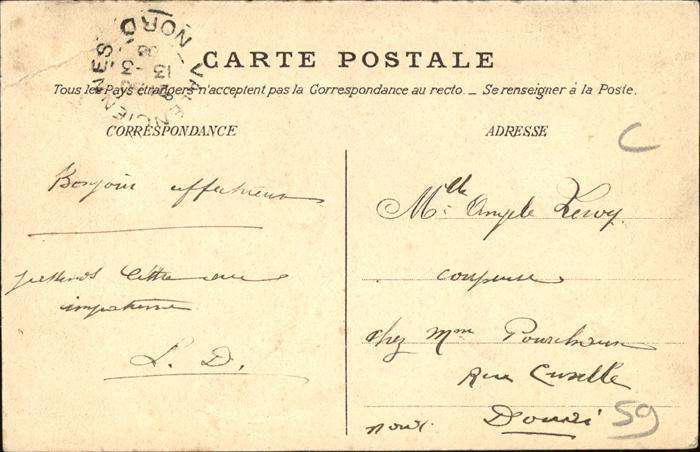 CARTE POSTALE
Tous les Pays étrangers n'acceptent pas la Correspondance au recto. _ Se renseigner à la Poste.
VALENCIENNES
NORD
13 - 3
CORRESPONDANCE
Bonjour affectueux
j'attends lettre avec
impatience
L. D.
ADRESSE
C
Melle Angele Leroy
coupeuse
chez Mme
Rue Cuvelle
Nord. Douai
59